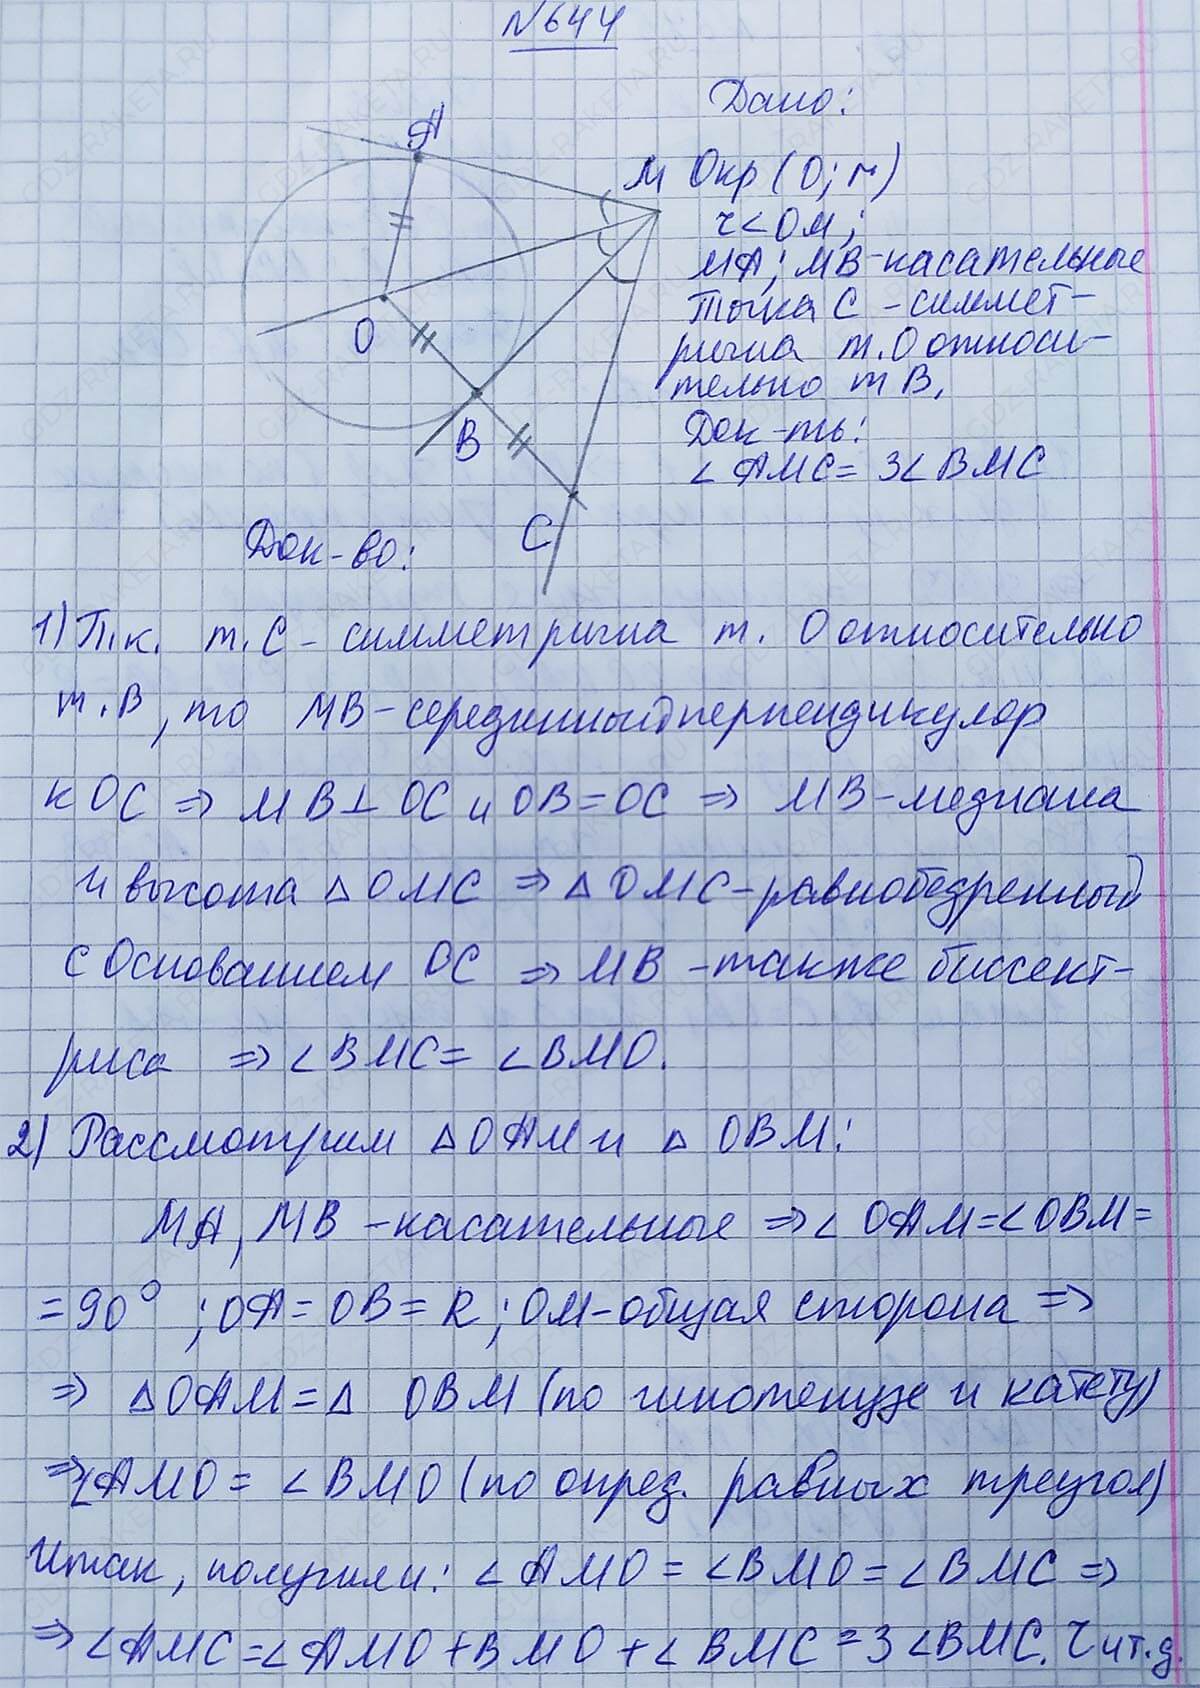 №644
Дано:
A
M Окр (O; r)
r<OM;
MA; MB-касательные
Точка C - симмет-
рична т.O относи-
тельно т B,
O
B
C
Док-ть:
∠AMC= 3∠BMC
Док-во:
1) Т.к. т.C - симметрична т. O относительно
т.B, то MB-серединный перпендикуляр
к OC ⇒ MB⊥OC и OB=OC ⇒ MB-медиана
и высота △OMC ⇒ △OMC-равнобедренный
с Основанием OC ⇒ MB -также биссект-
риса ⇒ ∠BMC= ∠BMO.
2) Рассмотрим △OAM и △OBM:
MA, MB -касательные ⇒ ∠OAM=∠OBM=
=90° ; OA=OB=R ; OM-общая сторона ⇒
⇒ △OAM=△ OBM (по гипотенузе и катету)
⇒∠AMO= ∠BMO (по опред. равных треугол)
Итак, получили: ∠AMO =∠BMO=∠BMC ⇒
⇒∠AMC=∠AMO+BMO+∠BMC=3∠BMC. Ч ит.д.